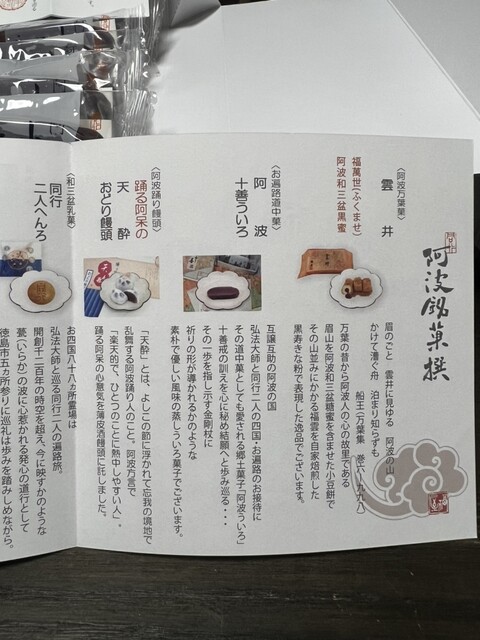 阿波銘菓撰
〈阿波万葉菓〉
雲井
福萬世(ふくませ)
阿波和三盆黒蜜
眉のごと　雲井に見ゆる　阿波の山
かけて漕ぐ舟　泊まり知らずも
船王（万葉集　巻六・九九八
万葉の昔から阿波人の心の故里である
眉山を阿波和三盆糖蜜を含ませた小豆餅で
その山並みにかかる福雲を自家焙煎した
黒寿きな粉で表現した逸品でございます。
〈お遍路道中菓〉
阿波
十善ういろ
互譲互助の阿波の国
弘法大師と同行二人の四国・お遍路のお接待に
その道中菓としても愛される郷土菓子「阿波ういろ」
十善戒の訓えを心に秘め結願へと歩み巡る・・・
その一歩を指し示す金剛杖に
祈りの形が導かれるかのような
素朴で優しい風味の蒸しういろ菓子でございます。
〈阿波踊り饅頭〉
踊る阿呆の
天酔
おどり饅頭
「天酔」とは、よしこの節に浮かれて忘我の境地で
乱舞する阿波踊り人のこと。阿波方言で
「楽天的で、ひとつのことに熱中しやすい人」。
踊る阿呆の心意気を薄皮酒饅頭に託しました。
〈和三盆乳菓〉
同行
二人へんろ
お四国八十八カ所霊場は
弘法大師と巡る同行二人の遍路旅。
開創千二百年の時空を超え、今に映すかのような
甍(いらか)の波に心惹かれる発心の道行として
徳島市五カ所参りに巡礼は歩を踏みしめながら。